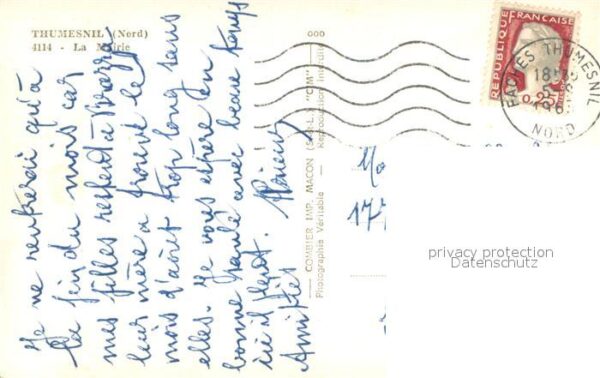 THUMESNIL (Nord)
4114 - La Mairie
Je ne rentrerai qu'à
la fin du mois car
mes filles restent à
leur mère a trouvé le
mois d'août trop long sans
elles. Je vous espère en
bonne santé avec beau temps
ici il pleut.
Amitiés
COMBIER IMP. MACON "CIM"
Photographie Véritable - Reproduction Interdite
REPUBLIQUE FRANÇAISE
0,25
FACHES THUMESNIL
18H
NORD
privacy protection
Datenschutz